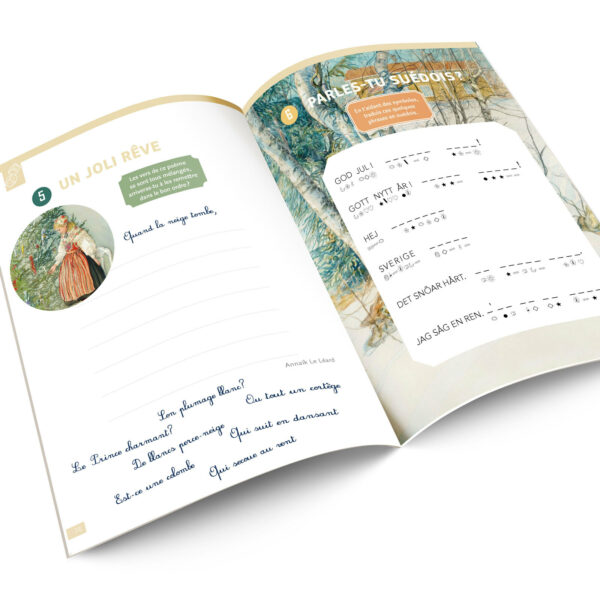 5
UN JOLI RÊVE
Les vers de ce poème
se sont tous mélangés,
arriveras-tu à les remettre
dans le bon ordre ?
Quand la neige tombe,
Annaïk Le Léard
Son plumage blanc?
Ou tout un cortège
Le Prince charmant?
De blancs perce-neige
Qui suit en dansant
Est-ce une colombe
Qui secoue au vent
6
PARLES-TU SUÉDOIS ?
En t'aidant des symboles,
traduis ces quelques
phrases en suédois.
GOD JUL !
GOTT NYTT ÅR !
HEJ
SVERIGE
DET SNÖAR HÅRT.
JAG SÅG EN REN.